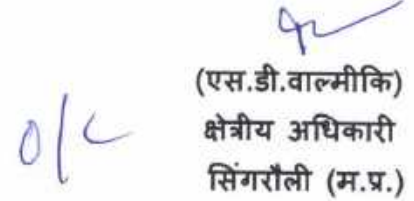 (एस.डी.वाल्मीकि)
O/C क्षेत्रीय अधिकारी
सिंगरौली (म.प्र.)